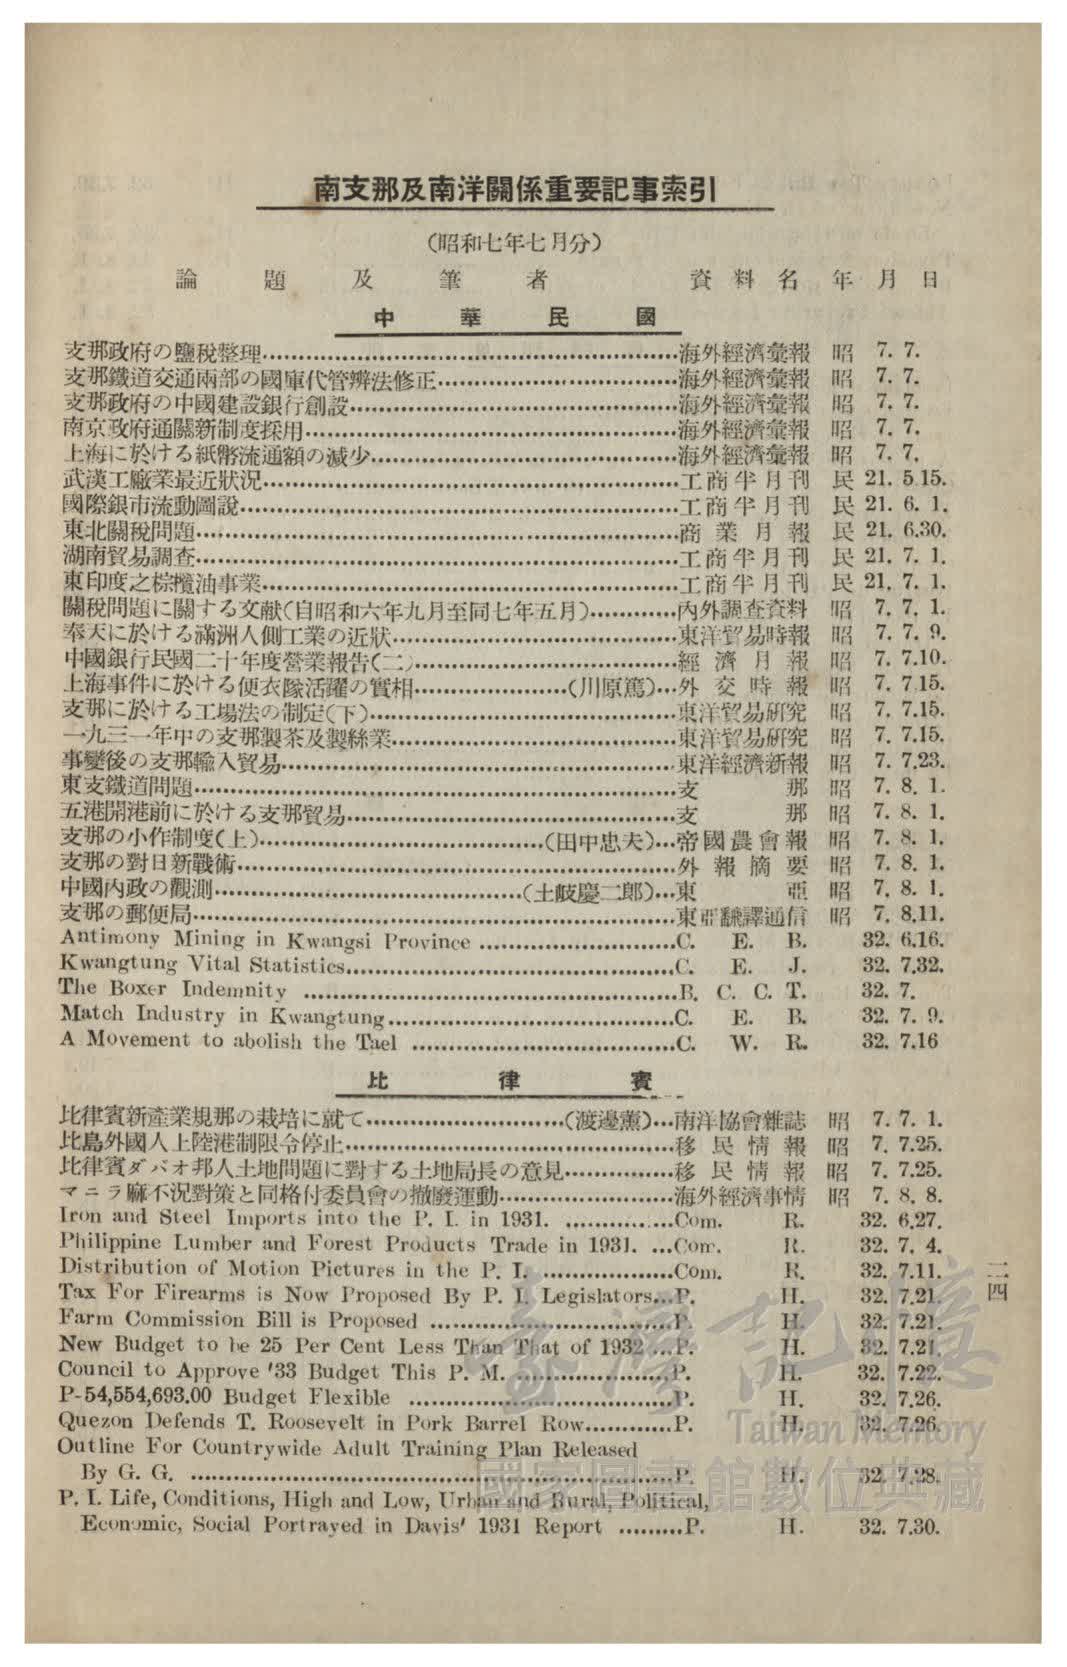 南支那及南洋關係重要記事索引
(昭和七年七月分)
論題及筆者 資料名 年月日
中華民國
支那政府の鹽稅整理……海外經濟彙報 昭 7. 7.
支那鐵道交通兩部の國庫代管辨法修正……海外經濟彙報 昭 7. 7.
支那政府の中國建設銀行創設……海外經濟彙報 昭 7. 7.
南京政府通關新制度採用……海外經濟彙報 昭 7. 7.
上海に於ける紙幣流通額の減少……海外經濟彙報 昭 7. 7.
武漢工廠業最近狀況……工商半月刊 民 21. 5.15.
國際銀市流動圖說……工商半月刊 民 21. 6. 1.
東北關稅問題……商業月報 民 21. 6.30.
湖南貿易調查……工商半月刊 民 21. 7. 1.
東印度之棕欖油事業……工商半月刊 民 21. 7. 1.
關稅問題に關する文献(自昭和六年九月至同七年五月)……內外調查資料 昭 7. 7. 1.
奉天に於ける滿洲人側工業の近狀……東洋貿易時報 昭 7. 7. 9.
中國銀行民國二十年度營業報告(二)……經濟月報 昭 7. 7.10.
上海事件に於ける便衣隊活躍の實相……(川原篤)…外交時報 昭 7. 7.15.
支那に於ける工場法の制定(下)……東洋貿易硏究 昭 7. 7.15.
一九三一年中の支那製茶及製絲業……東洋貿易硏究 昭 7. 7.15.
事變後の支那輸入貿易……東洋經濟新報 昭 7. 7.23.
東支鐵道問題……支那 昭 7. 8. 1.
五港開港前に於ける支那貿易……支那 昭 7. 8. 1.
支那の小作制度(上)……(田中忠夫)…帝國農會報 昭 7. 8. 1.
支那の對日新戰術……外報摘要 昭 7. 8. 1.
中國內政の觀測……(土岐慶二郎)…東亞 昭 7. 8. 1.
支那の郵便局……東亞飜譯通信 昭 7. 8.11.
Antimony Mining in Kwangsi Province ……C. E. B. 32. 6.16.
Kwangtung Vital Statistics……C. E. J. 32. 7.32.
The Boxer Indemnity ……B. C. C. T. 32. 7.
Match Industry in Kwangtung……C. E. B. 32. 7. 9.
A Movement to abolish the Tael ……C. W. R. 32. 7.16
比律賓
比律賓新產業規那の栽培に就て……(渡邊薰)…南洋協會雜誌 昭 7. 7. 1.
比島外國人上陸港制限令停止……移民情報 昭 7. 7.25.
比律賓ダバオ邦人土地問題に對する土地局長の意見……移民情報 昭 7. 7.25.
マニラ麻不況對策と同格付委員會の撤廢運動……海外經濟事情 昭 7. 8. 8.
Iron and Steel Imports into the P. I. in 1931. ……Com. R. 32. 6.27.
Philippine Lumber and Forest Products Trade in 1931. …Com. R. 32. 7. 4.
Distribution of Motion Pictures in the P. I. ……Com. R. 32. 7.11.
Tax For Firearms is Now Proposed By P. I. Legislators…P. H. 32. 7.21.
Farm Commission Bill is Proposed ……P. H. 32. 7.21.
New Budget to be 25 Per Cent Less Than That of 1932 …P. H. 32. 7.21.
Council to Approve '33 Budget This P. M. ……P. H. 32. 7.22.
P-54,554,693.00 Budget Flexible ……P. H. 32. 7.26.
Quezon Defends T. Roosevelt in Pork Barrel Row……P. H. 32. 7.26.
Outline For Countrywide Adult Training Plan Released
By G. G. ……P. H. 32. 7.28.
P. I. Life, Conditions, High and Low, Urban and Rural, Political,
Economic, Social Portrayed in Davis' 1931 Report ……P. H. 32. 7.30.
二四
臺灣記憶
Taiwan Memory
國家圖書館數位典藏